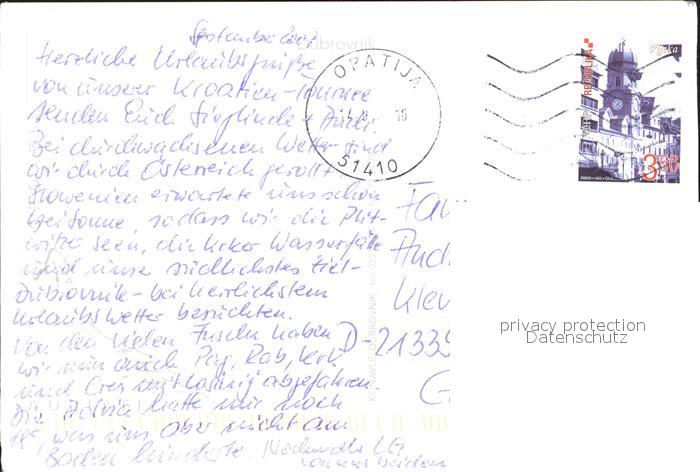 September 2007
Dubrovnik
Herzliche Urlaubsgrüße
von unserer Kroatien-Tournee
senden Euch Sieglinde +
Bei durchwachsenem Wetter sind
wir durch Österreich gerollt.
Slowenien erwartete uns schon
bei Sonne, sodass wir die Plit-
witzer Seen, die Krker Wasserfälle
und unser südlichstes Ziel-
Dubrovnik- bei herrlichstem
Urlaubswetter besuchten.
Von den vielen Inseln haben
wir nun auch Pag, Rab, Krk
und Cres abgefahren.
Die Adria hatte nur noch
18°, was uns aber nicht am
Baden hinderte. Nochmals LG
von uns beiden
OPATIJA
51410
REPUBLIKA
Rijeka
3.50
Fam
Klev
D-21339
privacy protection
Datenschutz